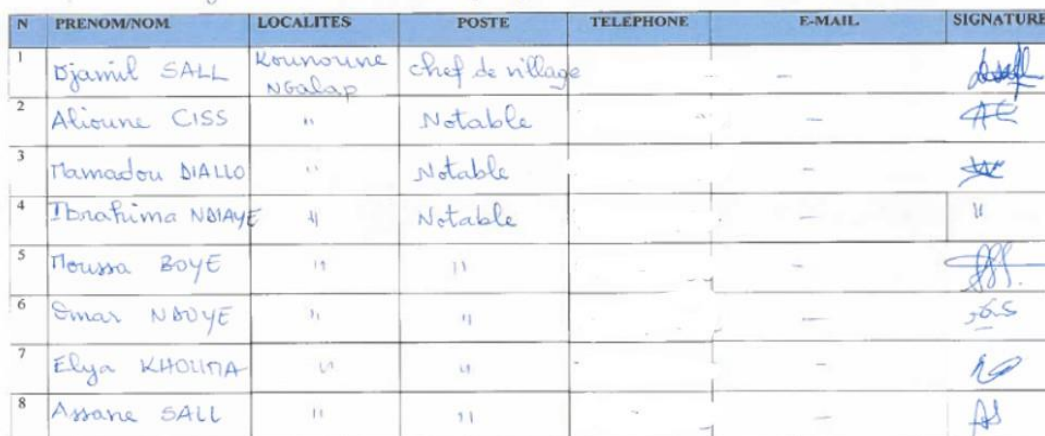 N PRENOM/NOM LOCALITES POSTE TELEPHONE E-MAIL SIGNATURE
1 Djamil SALL Kounoune NGalap chef de village —
2 Alioune CISS " Notable — AC
3 Mamadou DIALLO " Notable —
4 Ibrahima NDIAYE " Notable — "
5 Moussa BOYE " " —
6 Omar NDOYE " " —
7 Elya KHOUMA " " —
8 Assane SALL " " — AS